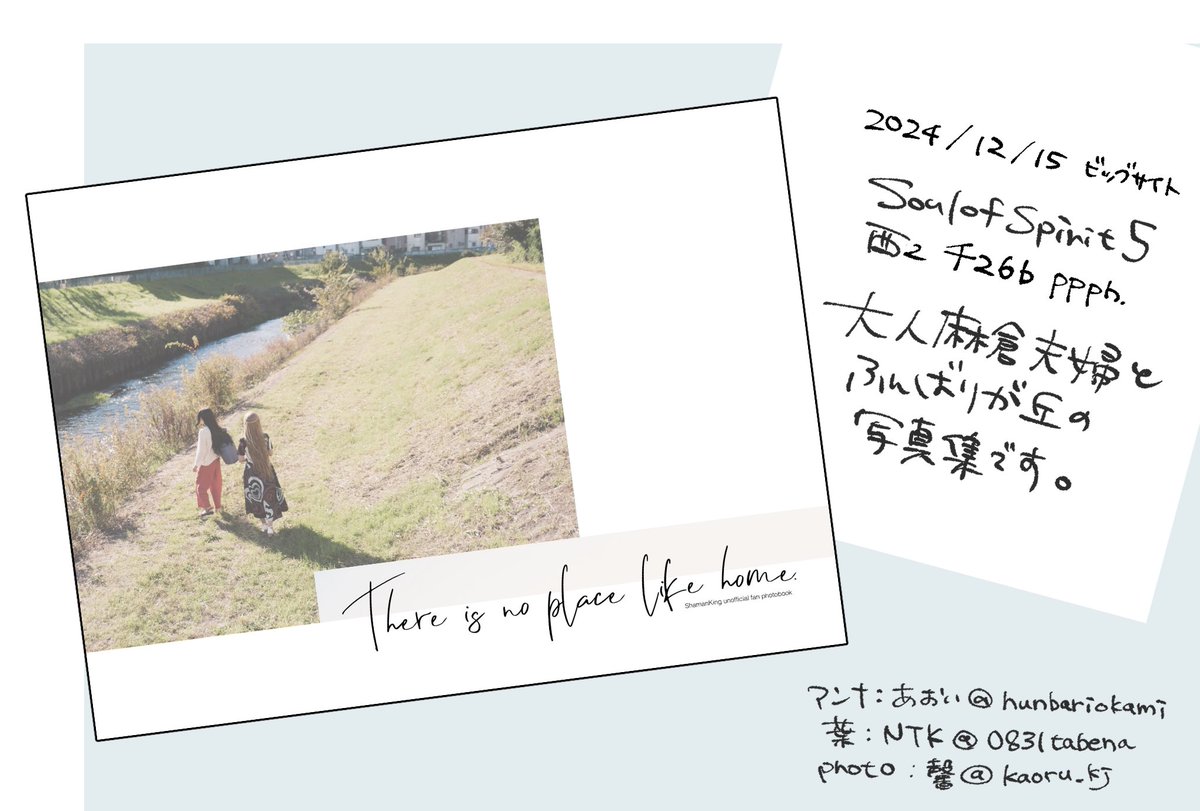 2024/12/15 ビッグサイト
Soul of Spirit 5
西2 チ26b ppph.
大人麻倉夫婦と
ふんばりが丘の
写真集です。
There is no place like home.
ShamanKing unofficial fan photobook
アンナ：あおい@hunbariokami
葉：NTK@0831tabena
photo：馨@kaoru_kj